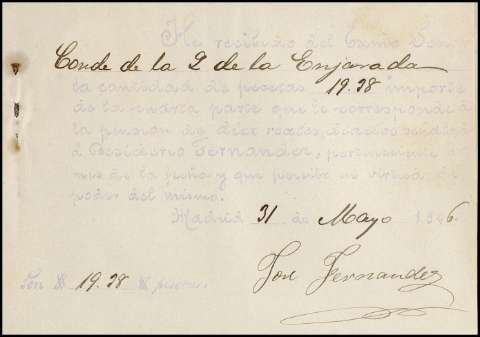 He recibido del Exmo Señor
Conde de la Q de la Enjarada
la cantidad de pesetas 19.38 importe
de la cuarta parte que le corresponde a
la pension de diez reales diarios
á Desiderio Fernandez, perteneciente
mes de la fecha y que percibo en virtud de
poder del mismo.
Madrid 31 de Mayo 6
Son 19.38 pesetas
José Fernandez